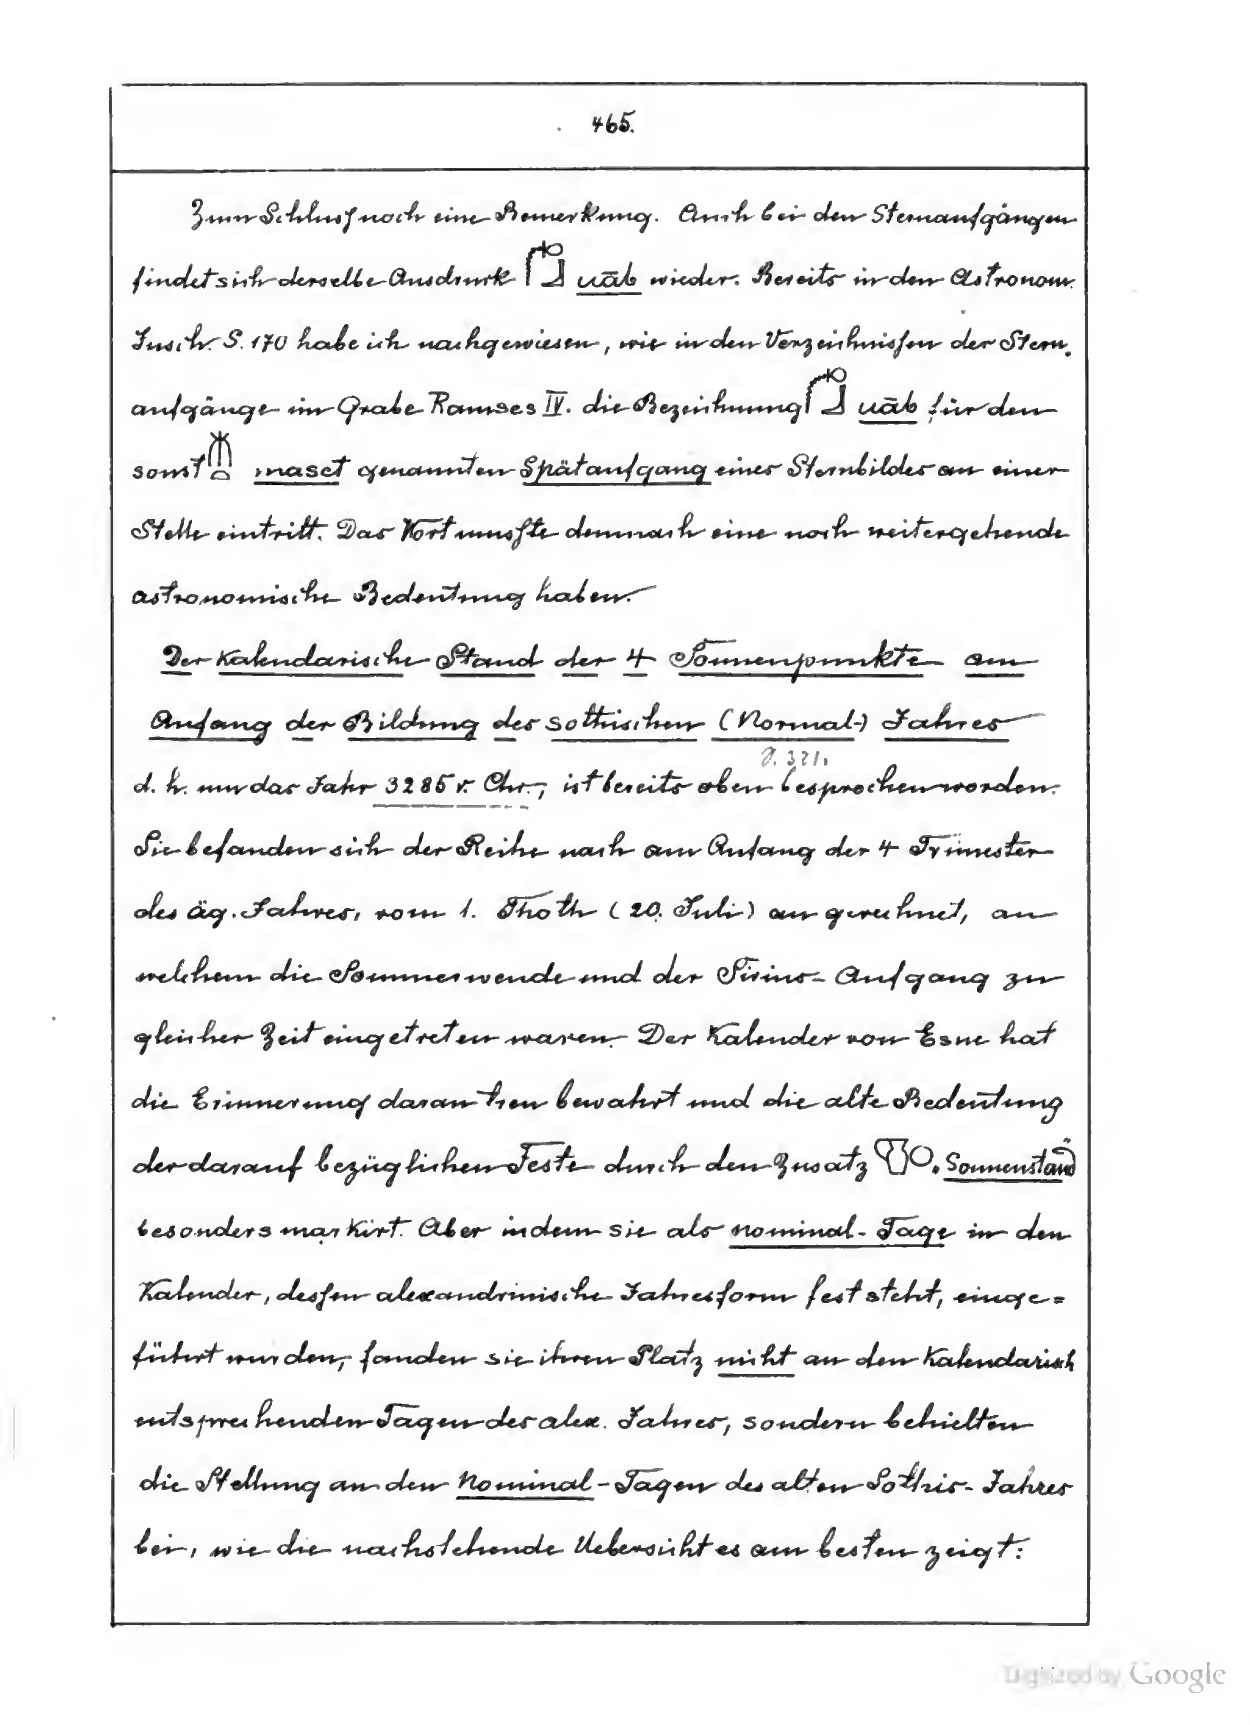 465.
Zum Schluß noch eine Bemerkung. Auch bei den Sternaufgängen
findet sich derselbe Ausdruck uāb wieder. Bereits in den Astronom.
Insch. S. 170 habe ich nachgewiesen, wie in den Verzeichnissen der Stern-
aufgänge im Grabe Ramses IV. die Bezeichnung uāb für den
sonst masct genannten Spätaufgang eines Sternbildes an einer
Stelle eintritt. Das Wort mußte demnach eine noch weitergehende
astronomische Bedeutung haben.
Der Kalendarische Stand der 4 Sonnenpunkte am
Anfang der Bildung des sothischen (Normal-) Jahres
S. 321.
d. h. um das Jahr 3285 v. Chr., ist bereits oben besprochen worden.
Sie befanden sich der Reihe nach am Anfang der 4 Trimester
des äg. Jahres, vom 1. Thoth (20. Juli) an gerechnet, an
welchem die Sommerwende und der Sirius-Aufgang zu
gleicher Zeit eingetreten waren. Der Kalender von Esne hat
die Erinnerung daran treu bewahrt und die alte Bedeutung
der darauf bezüglichen Feste durch den Zusatz Sonnenstand
besonders markirt. Aber indem sie als nominal-Tage in den
Kalender, dessen alexandrinische Jahresform fest steht, einge=
führt wurden, fanden sie ihren Platz nicht an den Kalendarisch
entsprechenden Tagen des alex. Jahres, sondern behielten
die Stellung an den Nominal-Tagen des alten Sothis-Jahres
bei, wie die nachstehende Uebersicht es am besten zeigt:
Digitized by Google